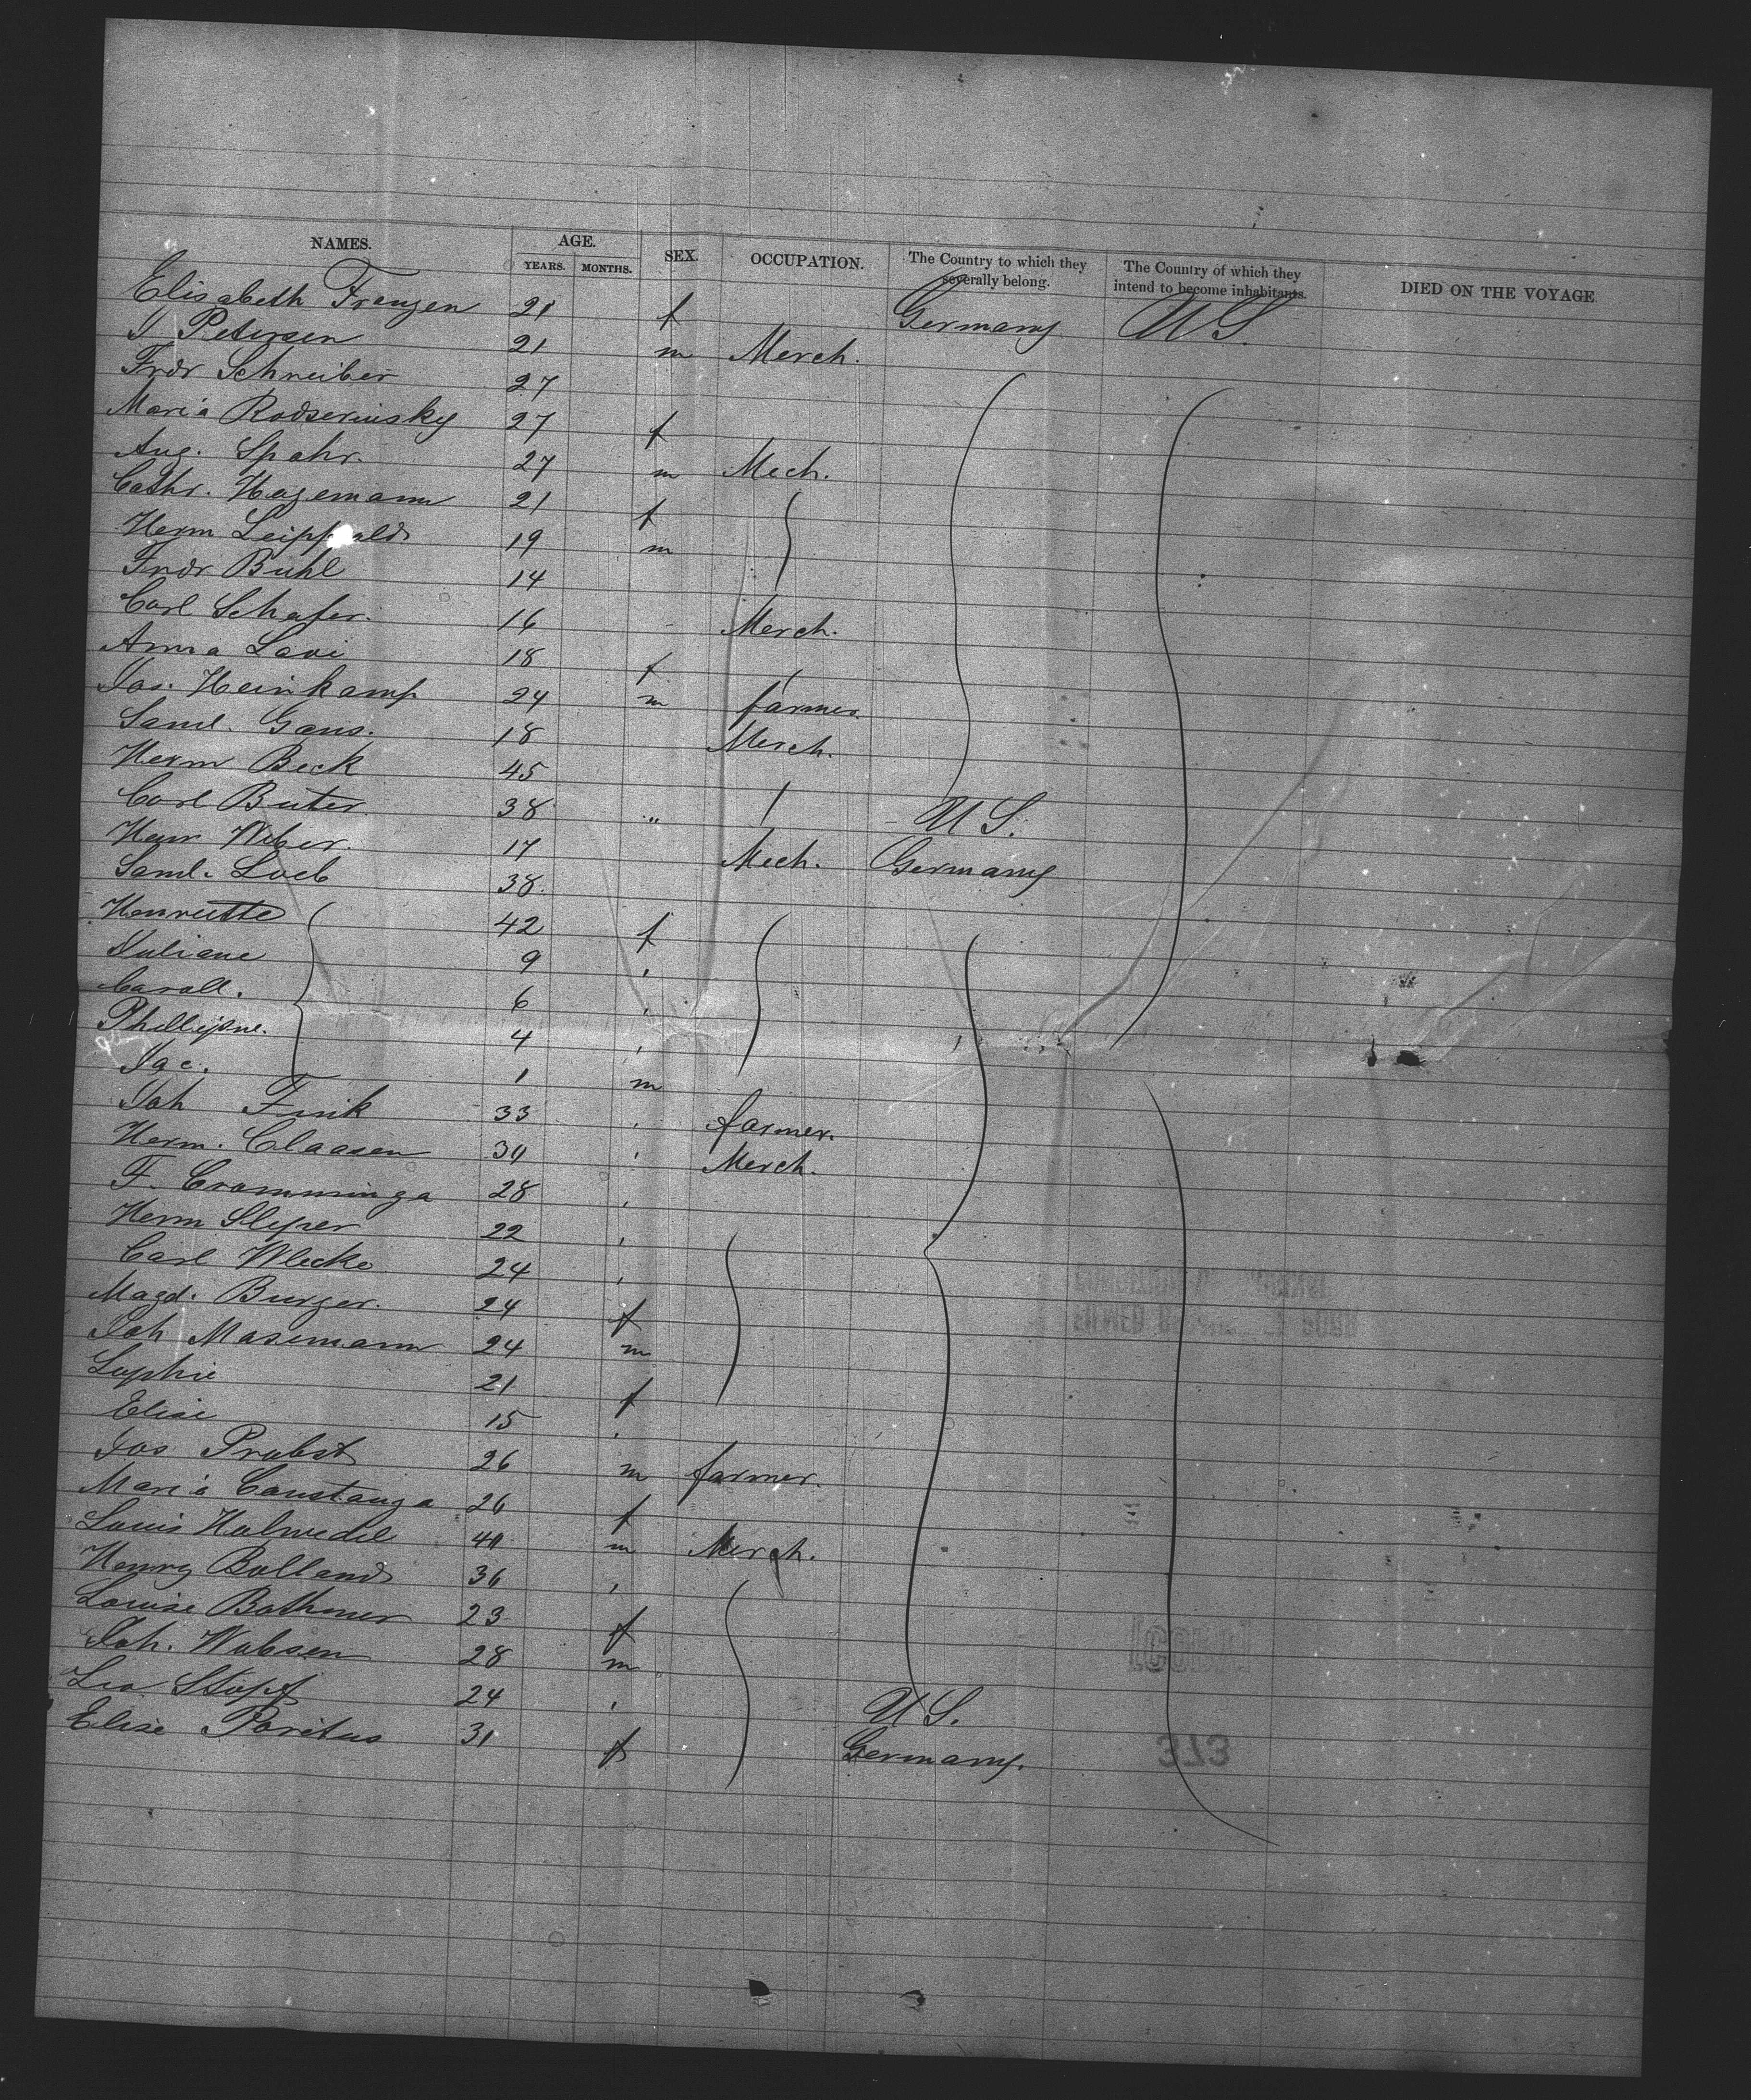 NAMES. AGE. SEX. OCCUPATION. The Country to which they severally belong. The Country of which they intend to become inhabitants. DIED ON THE VOYAGE
YEARS. MONTHS.
Elisabeth Frenzen 21 f Germany U S.
J Petersen 21 m Merch.
Fridr Schreiber 27
Maria 27 f
Aug. Spahr. 27 m Mech.
Cathr. Hagemann 21 f
Herm 19 m
Fridr Buhl 14
Carl Schafer. 16 Merch.
Anna Lavi 18 f
Jos. Heinkamp 24 m farmer.
Saml. Gans. 18 Merch.
Herm Beck 45
Carl Buter 38 " U S.
Henr Weber. 17 Mech. Germany
Saml. Loeb 38.
Henriette 42 f
Juliane 9 "
Caroll. 6 "
4 "
Jac. 1 m
Joh Fink 33 " farmer.
Herm. Claasen 30 " Merch.
F. Cramminga 28 "
Herm 22 "
Carl Wlecke 24 "
Magd. Burger. 24 f
Joh Masemann 24 m
Sophie 21 f
Elise 15 "
Jos Probst 26 m farmer.
Maria 26 f
Louis 40 m Merch.
Henry Bolland 36 "
Louise Bothmer 23 f
Joh. Wubsen 28 m
Leo Stopf 24 " U S.
Elise Poritus 31 f Germany.
373